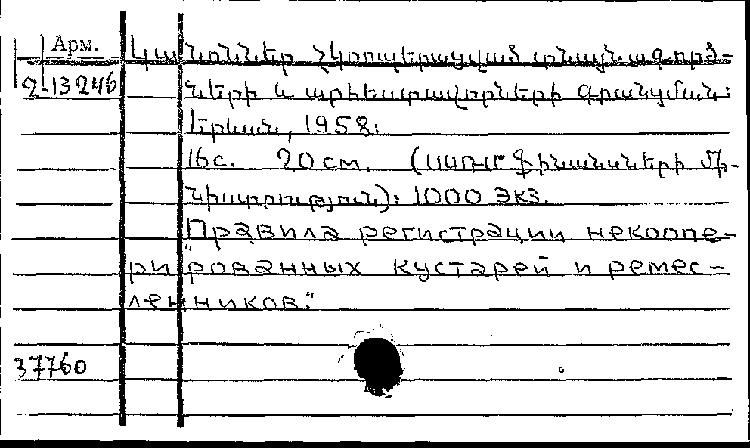 Арм.
2-13246
Կանոններ չկոոպերացված տնայնագործ-
ների և արհեստավորների գրանցման:
Երևան, 1958:
16с. 20 см. (ՍՍՌՄ Ֆինանսների մի-
նիստրություն): 1000 экз.
"Правила регистрации некоопе-
рированных кустарей и ремес-
ленников."
37760